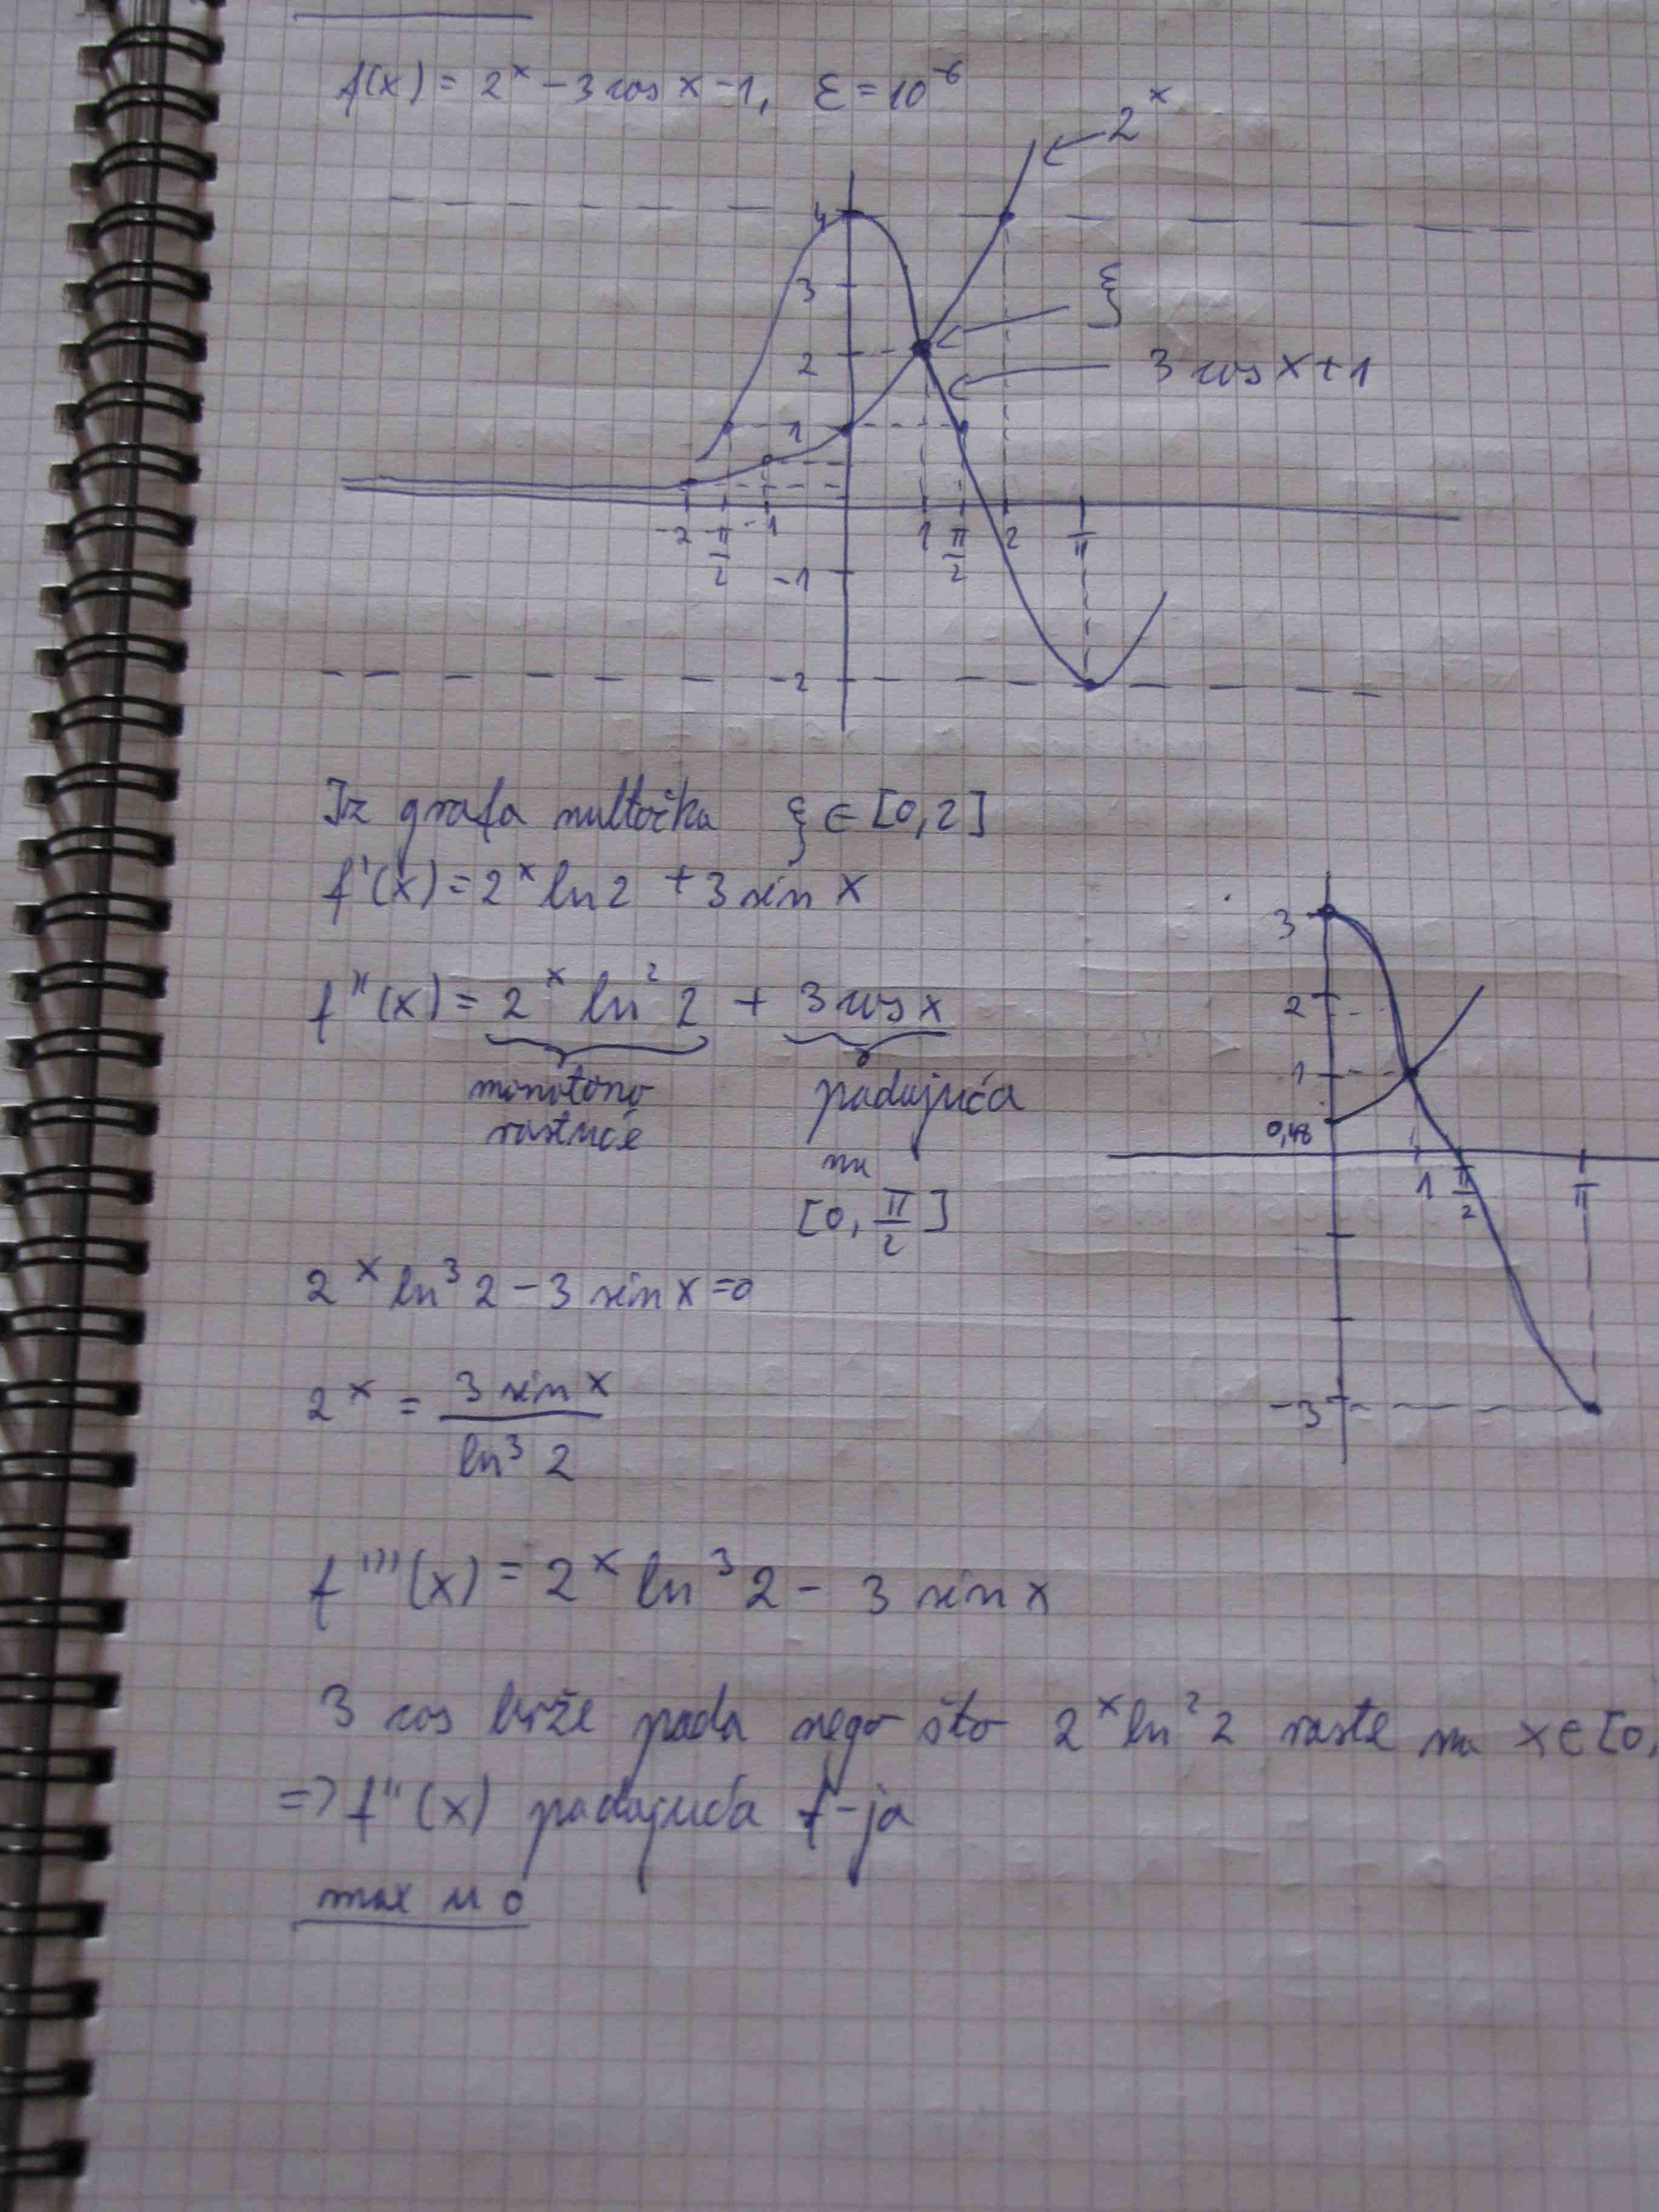 f(x) = 2^x - 3 cos x - 1, ε = 10^-6
2^x
4
3
ξ
2
3 cos x + 1
1
-2 -π/2 -1 1 π/2 2 π
-1
-2
Iz grafa nultočka ξ ∈ [0, 2]
f'(x) = 2^x ln 2 + 3 sin x
f''(x) = 2^x ln² 2 + 3 cos x
monotono padajuća
rastuće na
[0, π/2]
3
2
1
0,48
1 π/2 π
-3
2^x ln³ 2 - 3 sin x = 0
2^x = 3 sin x / ln³ 2
f'''(x) = 2^x ln³ 2 - 3 sin x
3 cos brže pada nego što 2^x ln² 2 raste na x ∈ [0,
=> f''(x) padajuća f-ja
max u 0